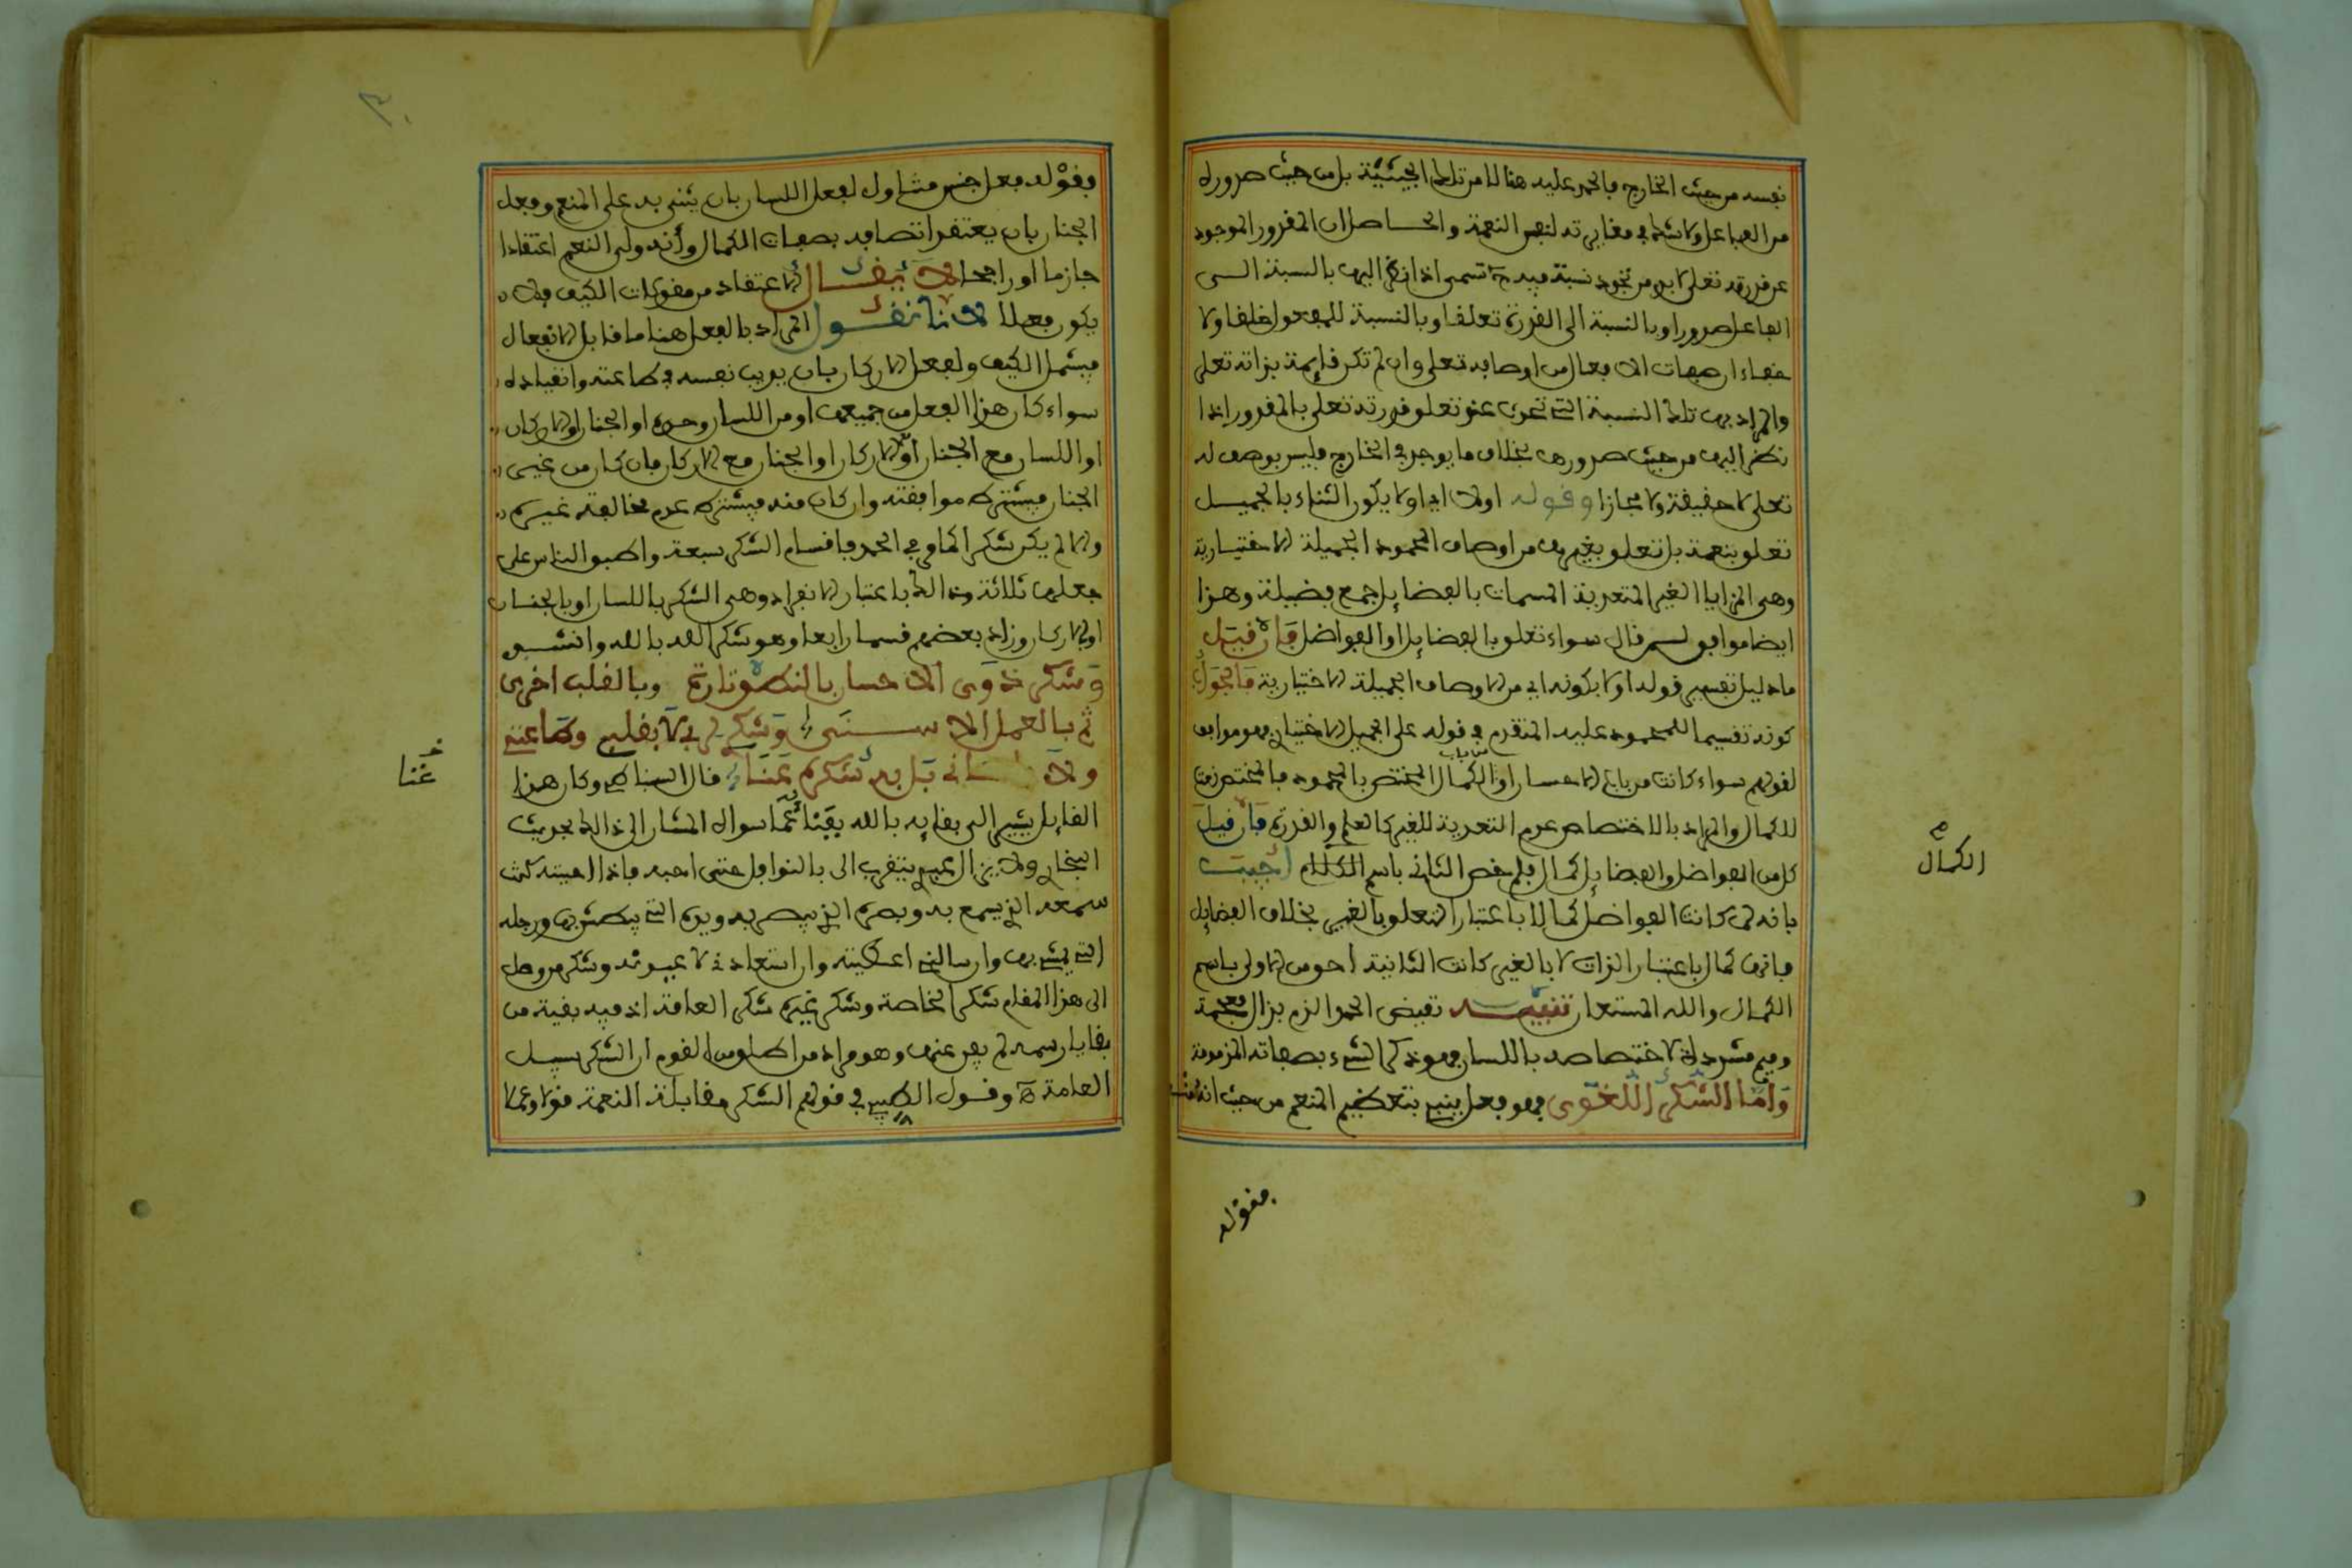 نفسه من حيث الخارج فالحمد عليه هنالك من تلك الحيثية بل من حيث صدوره
من الفاعل ولا شك في مغايرته لنفس النعمة والحاصل ان المقدور الموجود
عن قدرته تعلى لابد من تجدد نسبة فيه ح تسمى اذا نظر اليها بالنسبة الى
الفاعل صدورا وبالنسبة الى القدرة تعلقا وبالنسبة للمفعول خلقا ولا
خفاء ان صفات الافعال من اوصافه تعلى وان لم تكن قايمة بذاته تعلى
والمراد بها تلك النسبة التي تحدث عند تعلق قدرته تعلى بالمقدور اذا
نظر اليها من حيث صدورها بخلاف ما يوجد في الخارج فليس بوصف له
تعلى لا حقيقة ولا مجازا وقوله اولا اي اولا يكون الثناء بالجميل
تعلق بنعمة بل تعلق بغيرها من اوصاف المحمود الجميلة الاختيارية
وهي المزايا الغير المتعدية المسمات بالفضايل جمع فضيلة وهذا
ايضا موافق لمن قال سواء تعلق بالفضايل او الفواضل فان قيل
ما دليل تفسير قوله اولا بكونه اي من الاوصاف الجميلة الاختيارية فالجواب
كونه تقسيما للمحمود عليه المتقدم في قوله على الجميل الاختياري فهو موافق
لقولهم سواء كانت من باب الاحسان او من باب الكمال المختص بالمحمود فالمختص نعت
للكمال والمراد بالاختصاص عدم التعدية للغير كالعلم والقدرة فان قيل
كل من الفواضل والفضايل كمال فلم خص الثاني باسم الكمال اجيب
بانه لما كانت الفواضل كمالا باعتبار التعلق بالغير بخلاف الفضايل
فانها كمال باعتبار الذات لا بالغير كانت الثانية احق من الاولى باسم
الكمال والله المستعان تنبيه نقيض الحمد الذم بذال معجمة
وميم مشددة لاختصاصه باللسان فهو ذكر الشيء بصفاته المذمومة
وَأَمَّا الشُّكْرُ اللُّغَوِى فهو فعل ينبئ بتعظيم المنعم من حيث انه منعم
فقوله
الكمال
وقوله فعل جنس متناول لفعل اللسان بان يثنى به على المنعم وفعل
الجنان بان يعتقد اتصافه بصفات الكمال وأنه ولى النعم اعتقادا
جازما او راجحا لا يقال الاعتقاد من مقولات الكيف فلا
يكون فعلا لانا نقول المراد بالفعل هنا ما قابل الانفعال
فيشمل الكيف ولفعل الاركان بان يديب نفسه في طاعته وانقياده
سواء كان هذا الفعل من جميعها او من اللسان وحده او الجنان او الاركان
او اللسان مع الجنان او الاركان او الجنان مع الاركان فان كان من غير
الجنان فيشترط موافقته وان كان منه فيشترط عدم مخالفة غيره
والا لم يكن شكرا كما في الحمد فاقسام الشكر سبعة واطبق الناس على
جعلها ثلاثة وذالك باعتبار الانفراد وهي الشكر باللسان او بالجنان
او الاركان وزاد بعضهم قسما رابعا وهو شكر الله بالله وانشد
وَشكر ذوى الاحسان بالنطق تارة وبالقلب اخرى
ثم بالعمل الاسنى وَشكري لربي لا بقلبي وطاعتي
ولا بلساني بَل به شكره عَنَّا قال السناطي وكان هذا
القايل يشير الى بقايه بالله بفنائه عمّا سواه المشار الى ذالك بحديث
البخاري ولا يزال عبدي يتقرب الى بالنوافل حتى احبه فاذا احببته كنت
سمعه الذي يسمع به وبصره الذي يبصر به ويده التي يبطش بها ورجله
التي يمشي بها وان سالني اعطيته وان استعاذني لاعيذنه وشكر من وصل
الى هذا المقام شكر الخاصة وشكر غيره شكر العامة اذ فيه بقية من
بقايا رسمه لم يفن عنها وهو مراد من اطلق من القوم ان الشكر سبيل
العامة ه وقول الطيبي في قولهم الشكر مقابلة النعمة قولا وعملا
عَنَّا